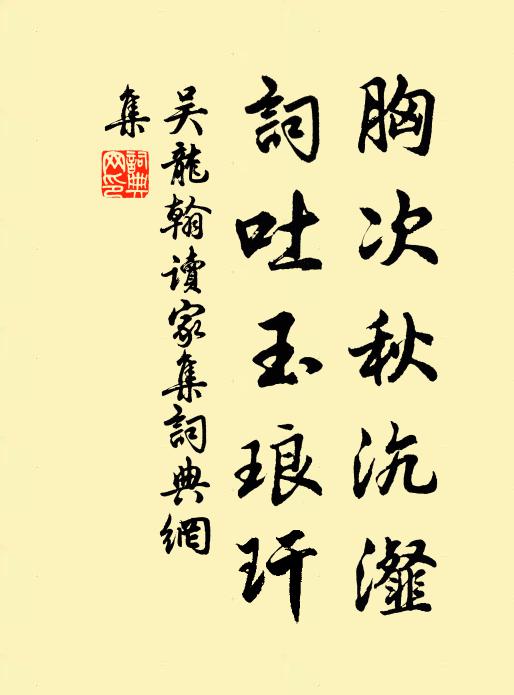 胸次秋沆瀣
詞吐玉琅玕
吴龍翰讀家集詞典網
集
詞典網